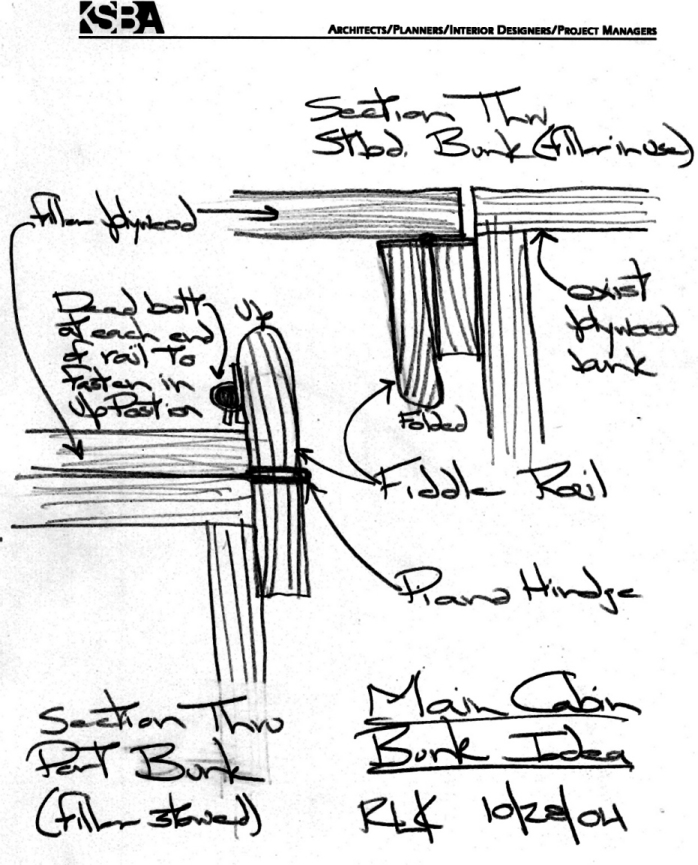 KSBA
ARCHITECTS/PLANNERS/INTERIOR DESIGNERS/PROJECT MANAGERS
Section Thru
Stbd. Bunk (filler in use)
filler plywood
exist
plywood
bunk
Dead bolt
at each end
of rail to
fasten in
Up Position
Up
Folded
Fiddle Rail
Piano Hindge
Section Thru
Port Bunk
(filler stowed)
Main Cabin
Bunk Idea
RLK 10/28/04